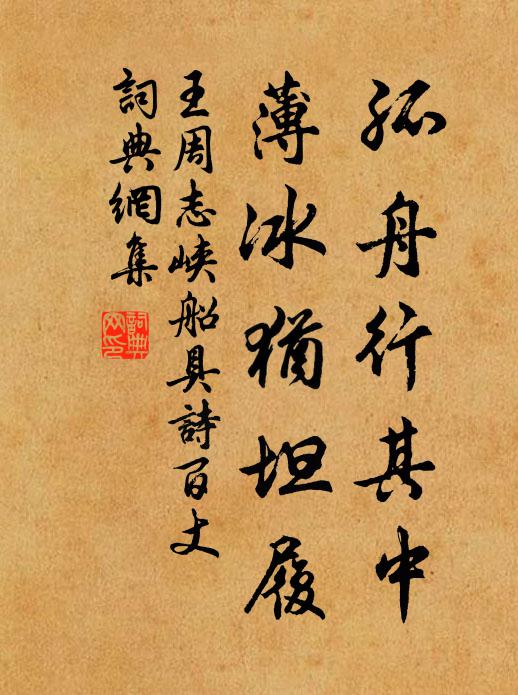 孤舟行其中
薄冰猶坦履
王周志峽船具詩百丈
詞典網集
詞典
网印